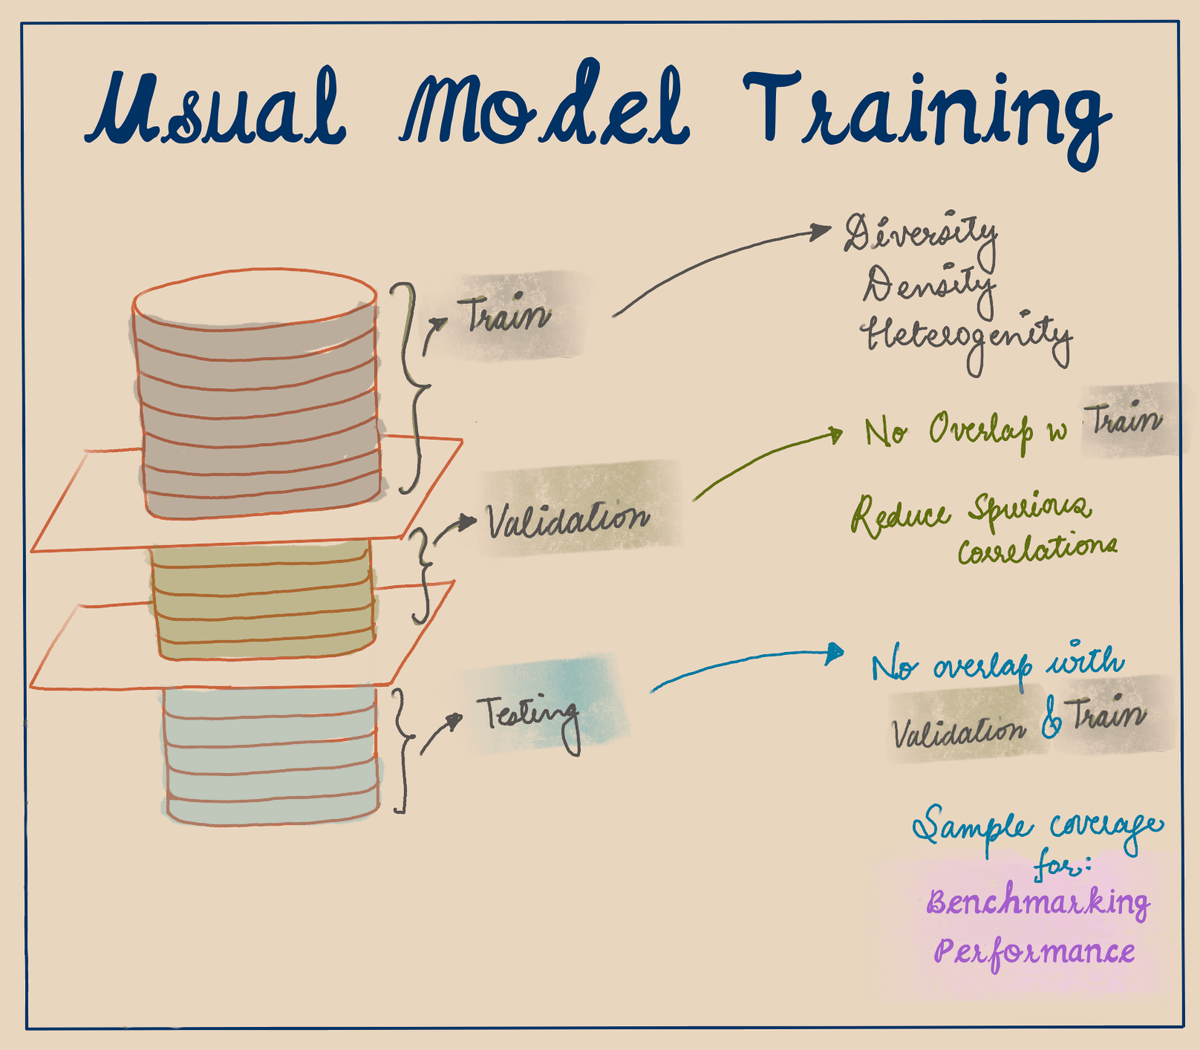 Usual Model Training
Train
Diversity
Density
Heterogenity
Validation
No Overlap w Train
Reduce Spurious
Correlations
Testing
No overlap with
Validation & Train
Sample coverage
for:
Benchmarking
Performance